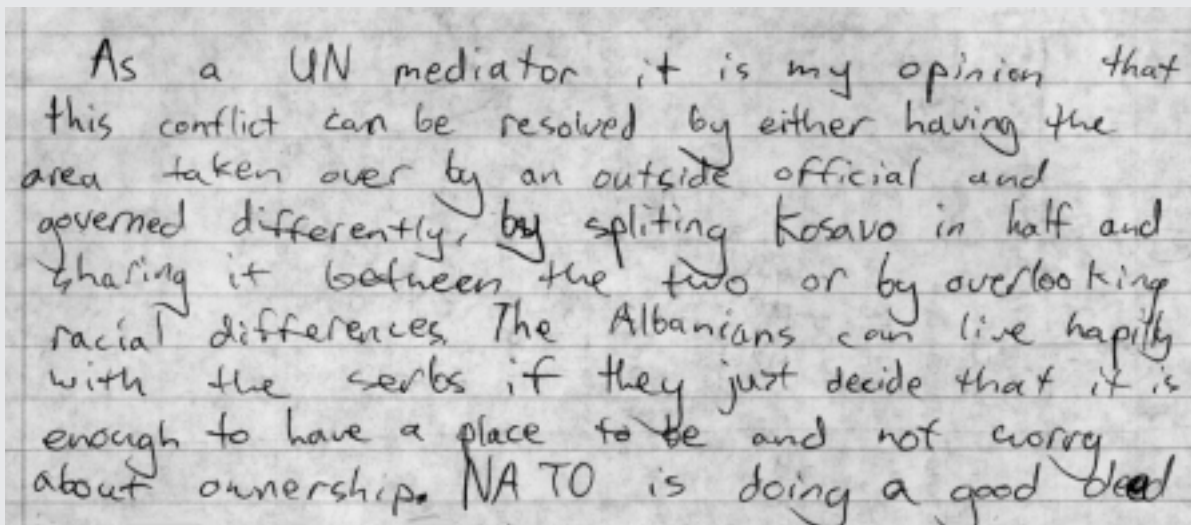 As a UN mediator it is my opinion that
this conflict can be resolved by either having the
area taken over by an outside official and
governed differently, by spliting Kosavo in half and
sharing it between the two or by overlooking
racial differences. The Albanians can live hapilly
with the serbs if they just decide that it is
enough to have a place to be and not worry
about ownership. NATO is doing a good deed